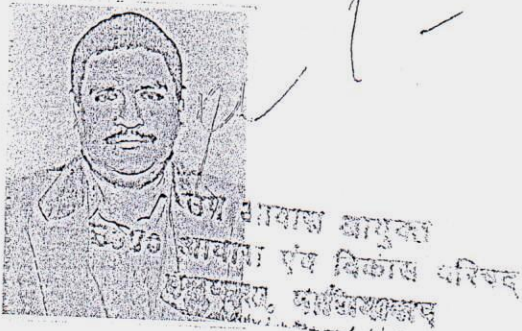 उप आवास आयुक्त
उ०प्र० आवास एंव विकास परिषद
गाजियाबाद